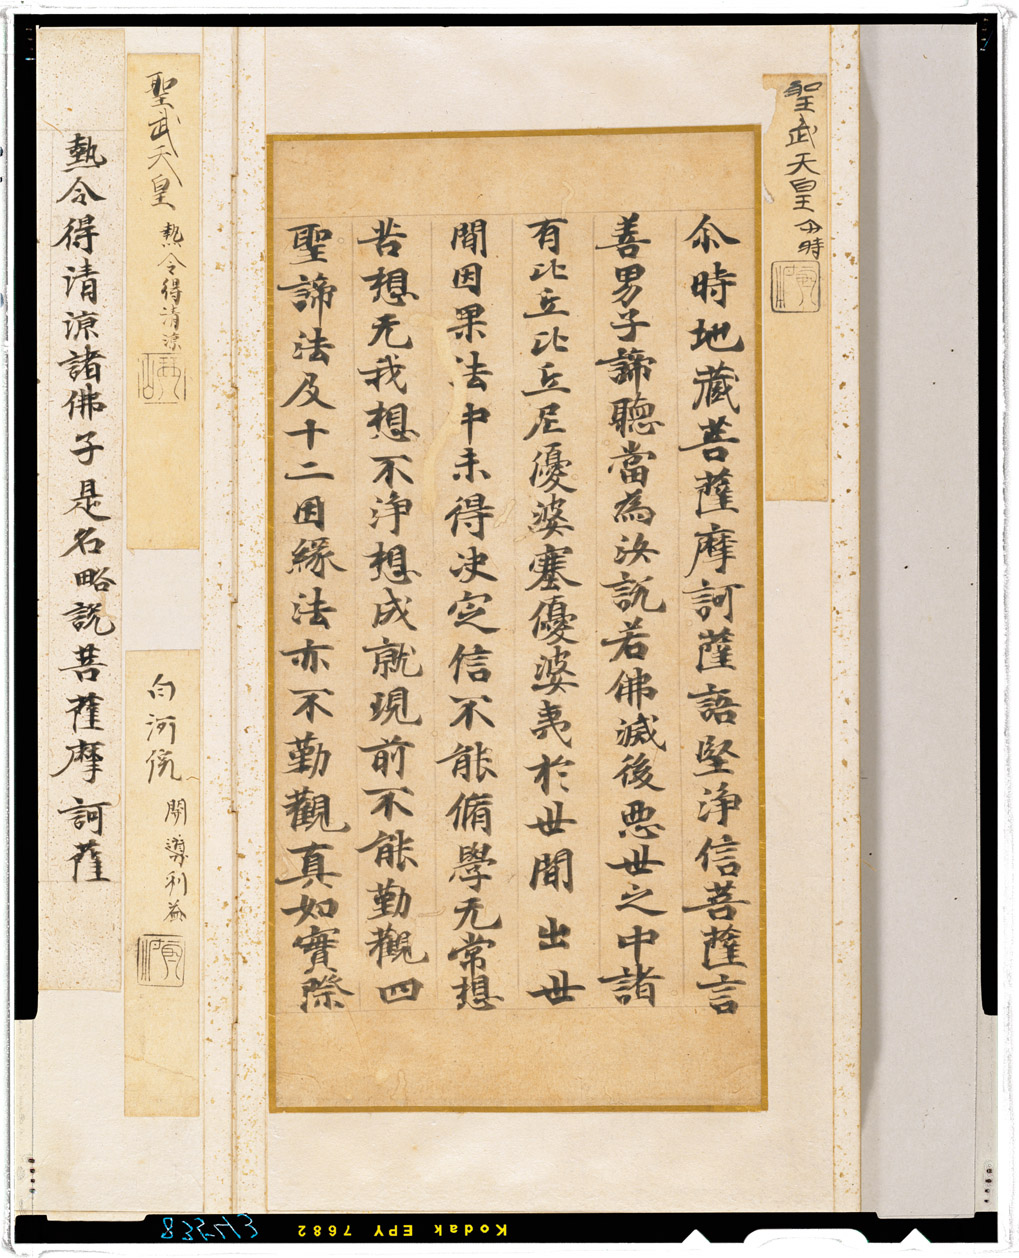 聖武天皇 尒時
尒時地藏菩薩摩訶薩語堅淨信菩薩言
善男子諦聽當為汝說若佛滅後惡世之中諸
有比丘比丘尼優婆塞優婆夷於世間出世
間因果法中未得決定信不能脩學无常想
苦想无我想不淨想成就現前不能勤觀四
聖諦法及十二因緣法亦不勤觀真如實際
聖武天皇 熱令得清涼
開導利益
熱令得清涼諸佛子是名略說菩薩摩訶薩
Kodak EPY 7682